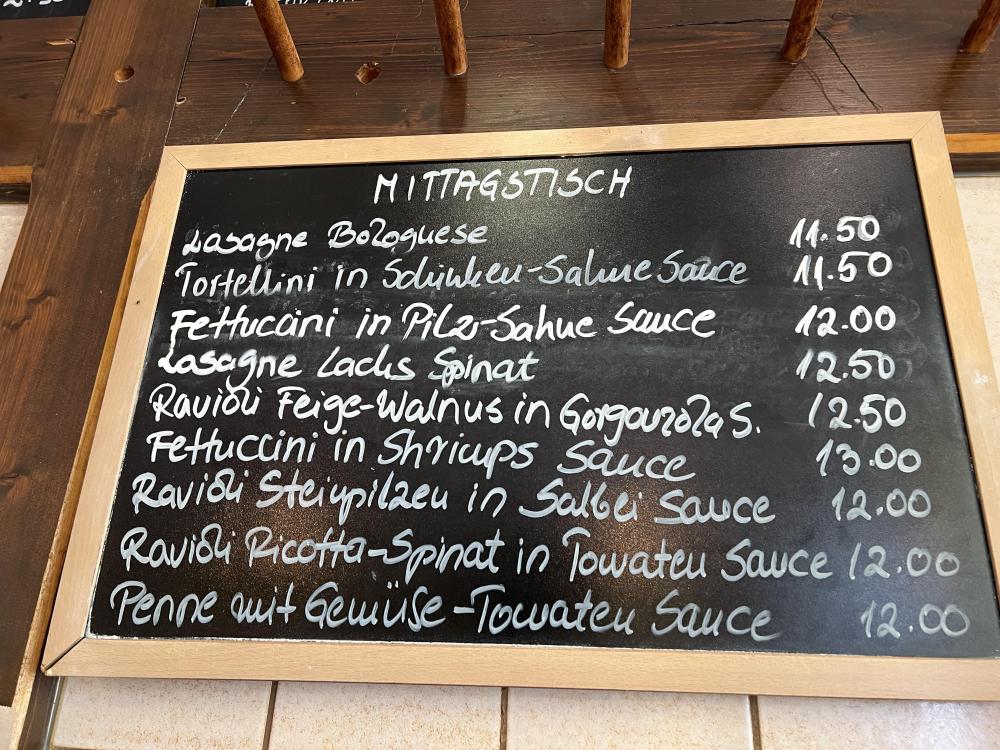 MITTAGSTISCH
Lasagne Bolognese 11.50
Tortellini in Schinken-Sahne Sauce 11.50
Fettuccini in Pilz-Sahne Sauce 12.00
Lasagne Lachs Spinat 12.50
Ravioli Feige-Walnus in Gorgonzola S. 12.50
Fettuccini in Shrimps Sauce 13.00
Ravioli Steinpilzen in Salbei Sauce 12.00
Ravioli Ricotta-Spinat in Tomaten Sauce 12.00
Penne mit Gemüse-Tomaten Sauce 12.00